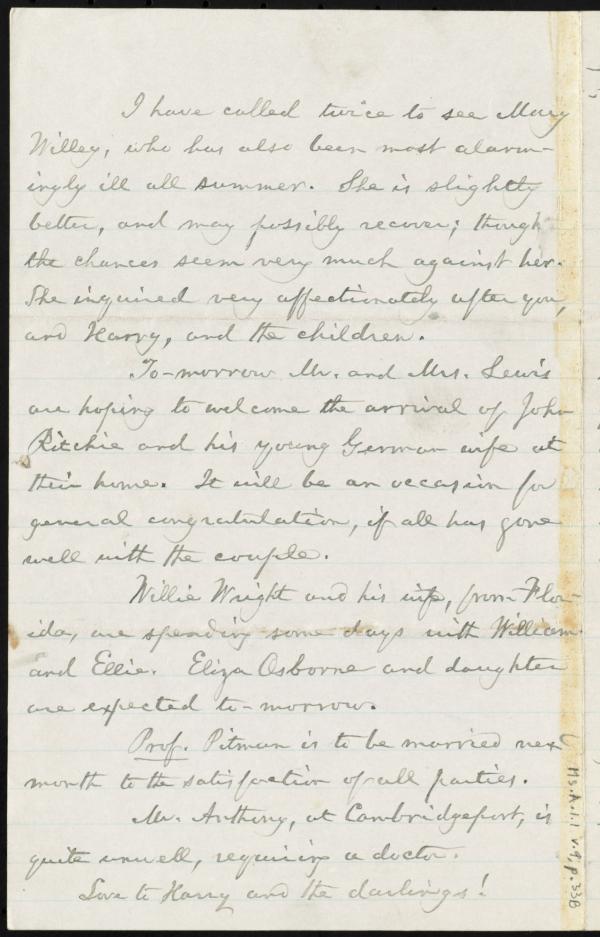 I have called twice to see Mary
Willey, who has also been most alarm-
ingly ill all summer. She is slightly
better, and may possibly recover; though
the chances seem very much against her.
She inquired very affectionately after you,
and Harry, and the children.
To-morrow Mr. and Mrs. Lewis
are hoping to welcome the arrival of John
Ritchie and his young German wife at
their home. It will be an occasion for
general congratulation, if all has gone
well with the couple.
Willie Wright and his wife, from Flor-
ida, are spending some days with William
and Ellie. Eliza Osborne and daughter
are expected to-morrow.
Prof. Pitman is to be married nex
month to the satisfaction of all parties.
Mr. Anthony, at Cambridgeport, is
quite unwell, requiring a doctor.
Love to Harry and the darlings!
Ms.A.1.1 v.9, p.33B